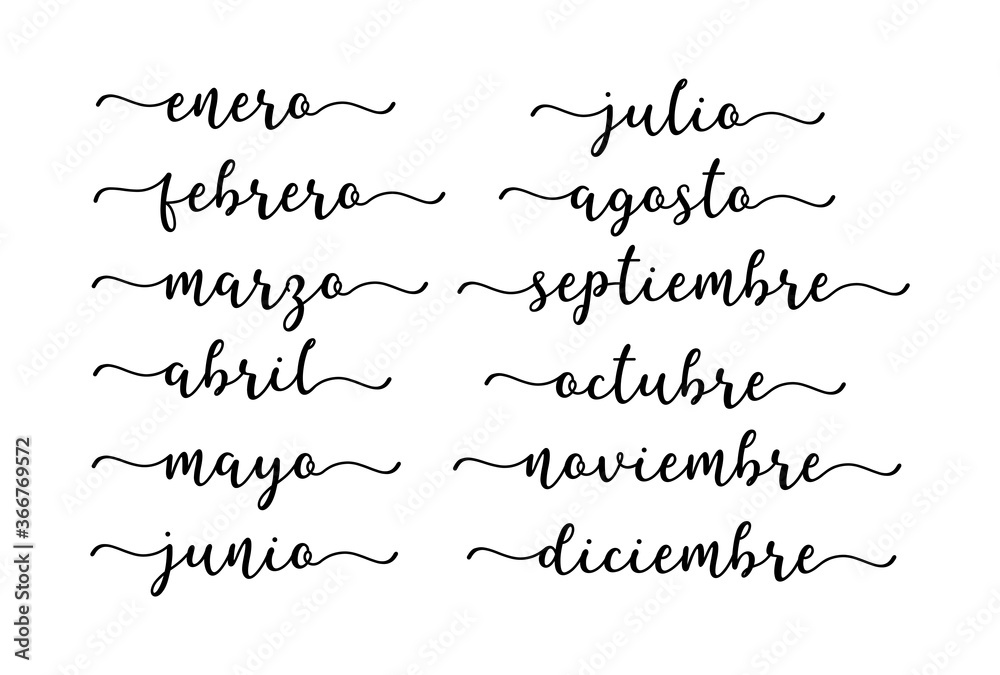 enero
febrero
marzo
abril
mayo
junio
julio
agosto
septiembre
octubre
noviembre
diciembre
Adobe Stock | #366769572